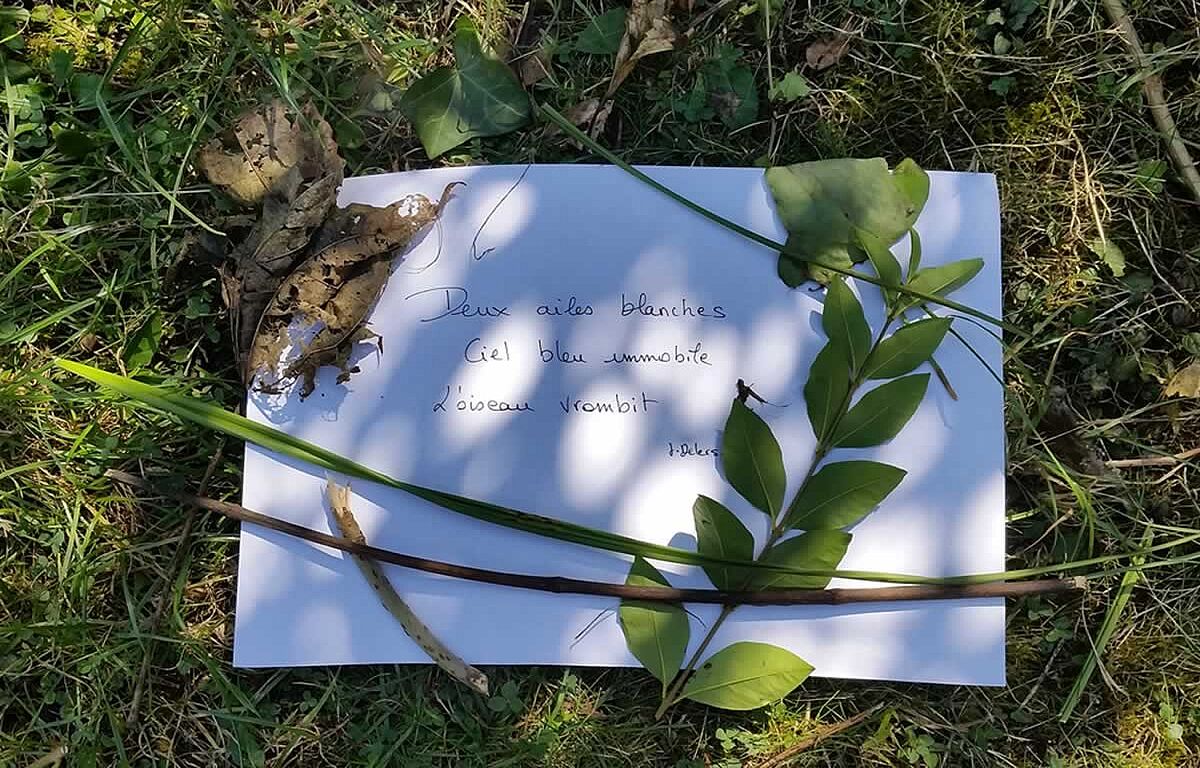 Deux ailes blanches
Ciel bleu immobile
L'oiseau vrombit